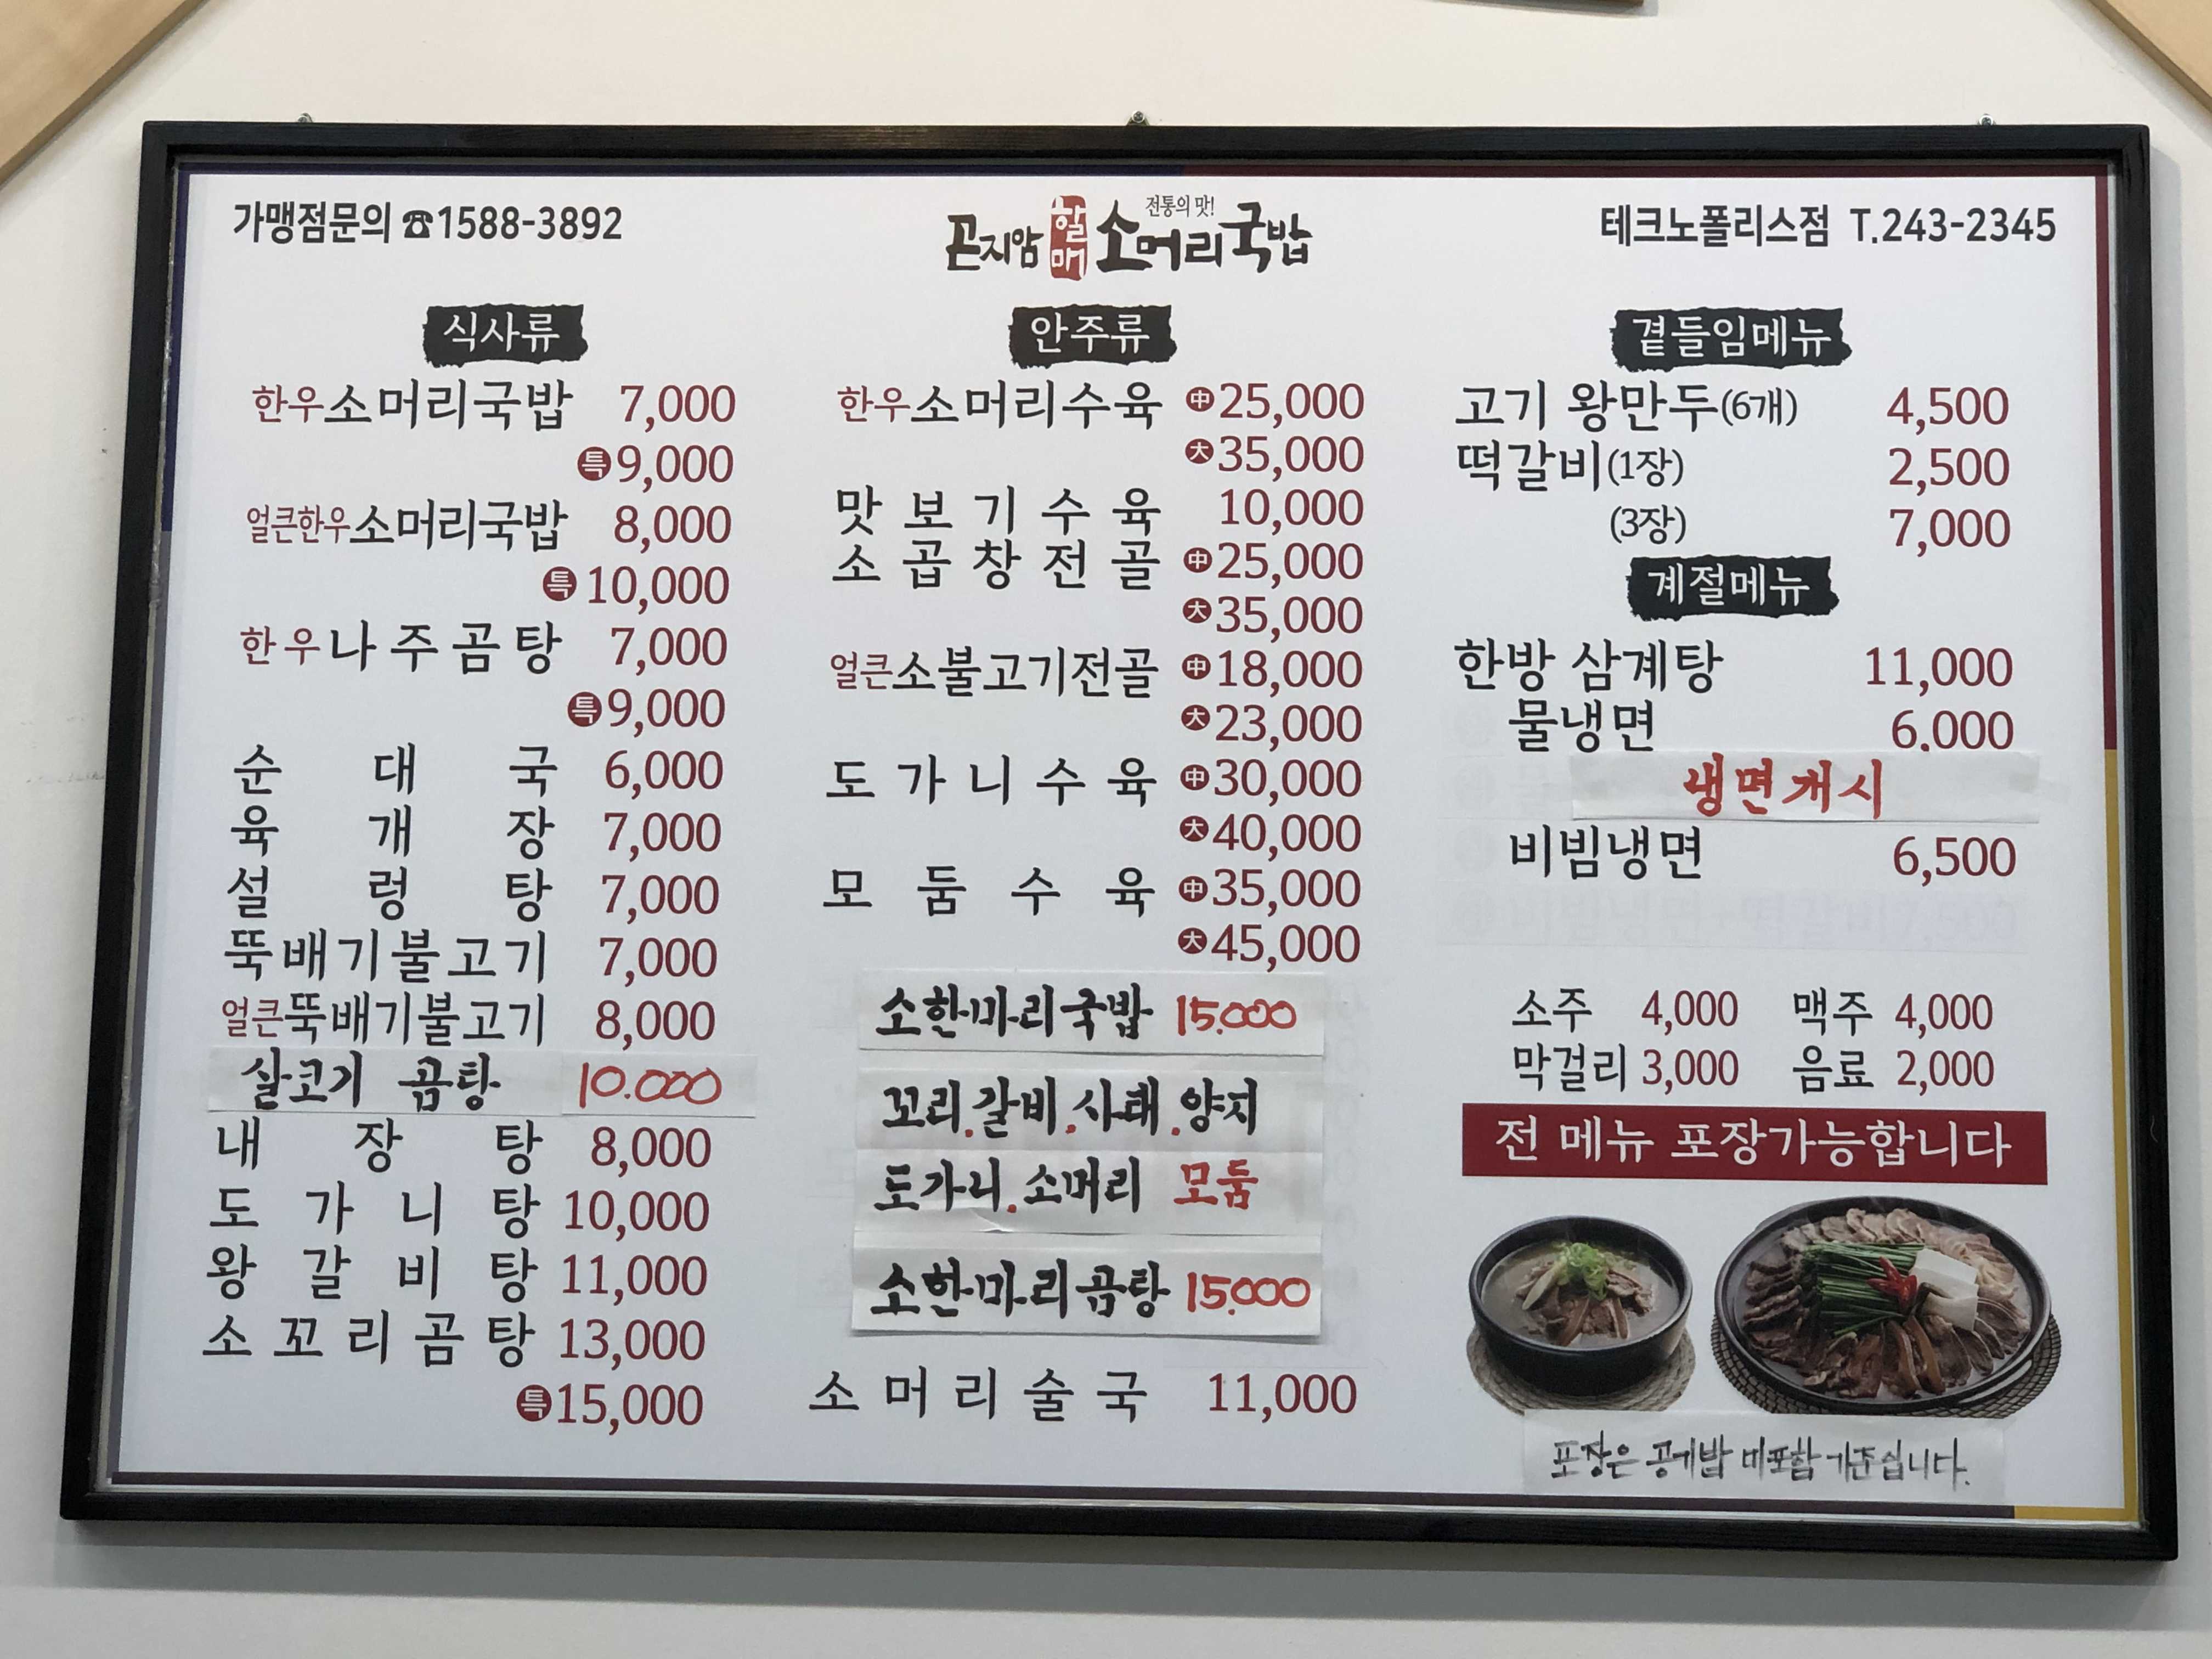 가맹점문의 ☎1588-3892
전통의 맛!
곤지암 할매 소머리국밥
테크노폴리스점 T.243-2345
식사류
한우소머리국밥 7,000
특 9,000
얼큰한우소머리국밥 8,000
특 10,000
한우나주곰탕 7,000
특 9,000
순대국 6,000
육개장 7,000
설렁탕 7,000
뚝배기불고기 7,000
얼큰뚝배기불고기 8,000
살코기 곰탕 10.000
내장탕 8,000
도가니탕 10,000
왕갈비탕 11,000
소꼬리곰탕 13,000
특 15,000
안주류
한우소머리수육 中 25,000
大 35,000
맛보기수육 10,000
소곱창전골 中 25,000
大 35,000
얼큰소불고기전골 中 18,000
大 23,000
도가니수육 中 30,000
大 40,000
모둠수육 中 35,000
大 45,000
소한마리국밥 15.000
꼬리.갈비.사태.양지
도가니.소머리 모둠
소한마리곰탕 15.000
소머리술국 11,000
곁들임메뉴
고기 왕만두(6개) 4,500
떡갈비(1장) 2,500
(3장) 7,000
계절메뉴
한방 삼계탕 11,000
물냉면 6,000
냉면개시
비빔냉면 6,500
소주 4,000 맥주 4,000
막걸리 3,000 음료 2,000
전 메뉴 포장가능합니다
포장은 공기밥 미포함 기준입니다.